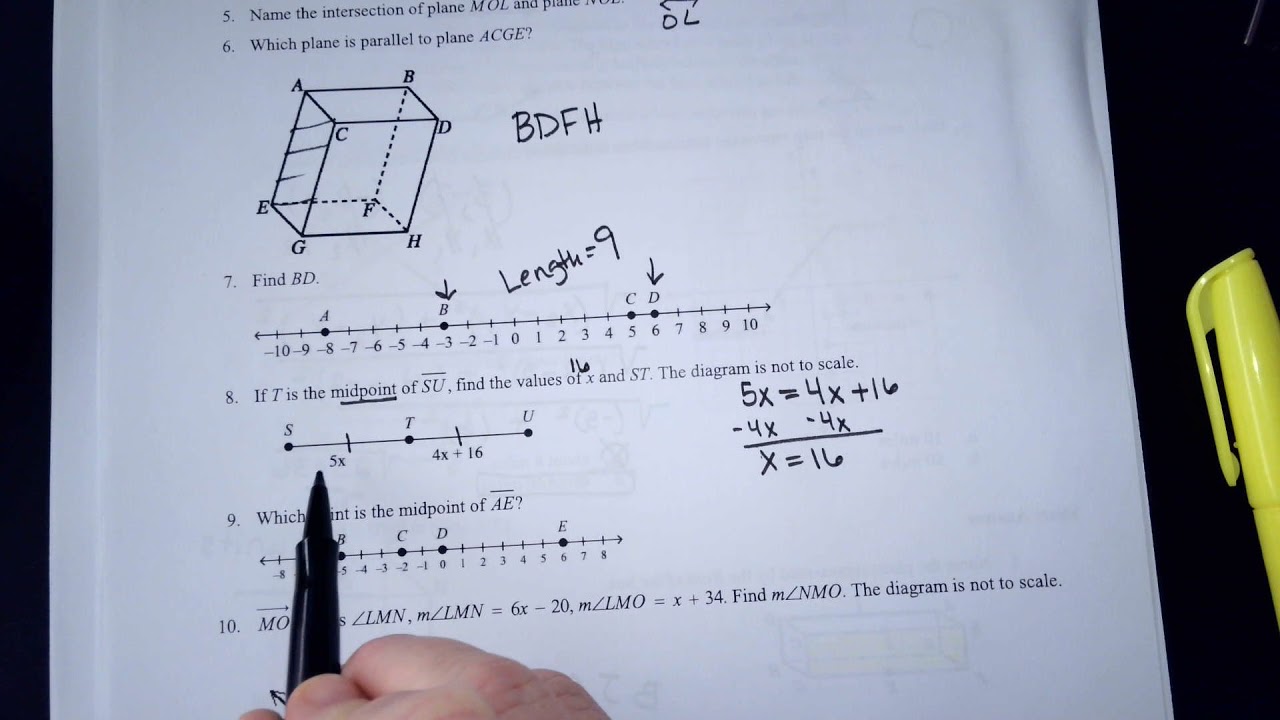 5. Name the intersection of plane MOL and plane NOL.
OL
6. Which plane is parallel to plane ACGE?
A B
C D
BDFH
E F
G H
7. Find BD.
Length = 9
A B C D
-10 -9 -8 -7 -6 -5 -4 -3 -2 -1 0 1 2 3 4 5 6 7 8 9 10
16
8. If T is the midpoint of SU, find the values of x and ST. The diagram is not to scale.
5x = 4x + 16
-4x -4x
x = 16
S T U
5x 4x + 16
9. Which point is the midpoint of AE?
B C D E
-8 -5 -4 -3 -2 -1 0 1 2 3 4 5 6 7 8
10. MO ∠LMN, m∠LMN = 6x − 20, m∠LMO = x + 34. Find m∠NMO. The diagram is not to scale.